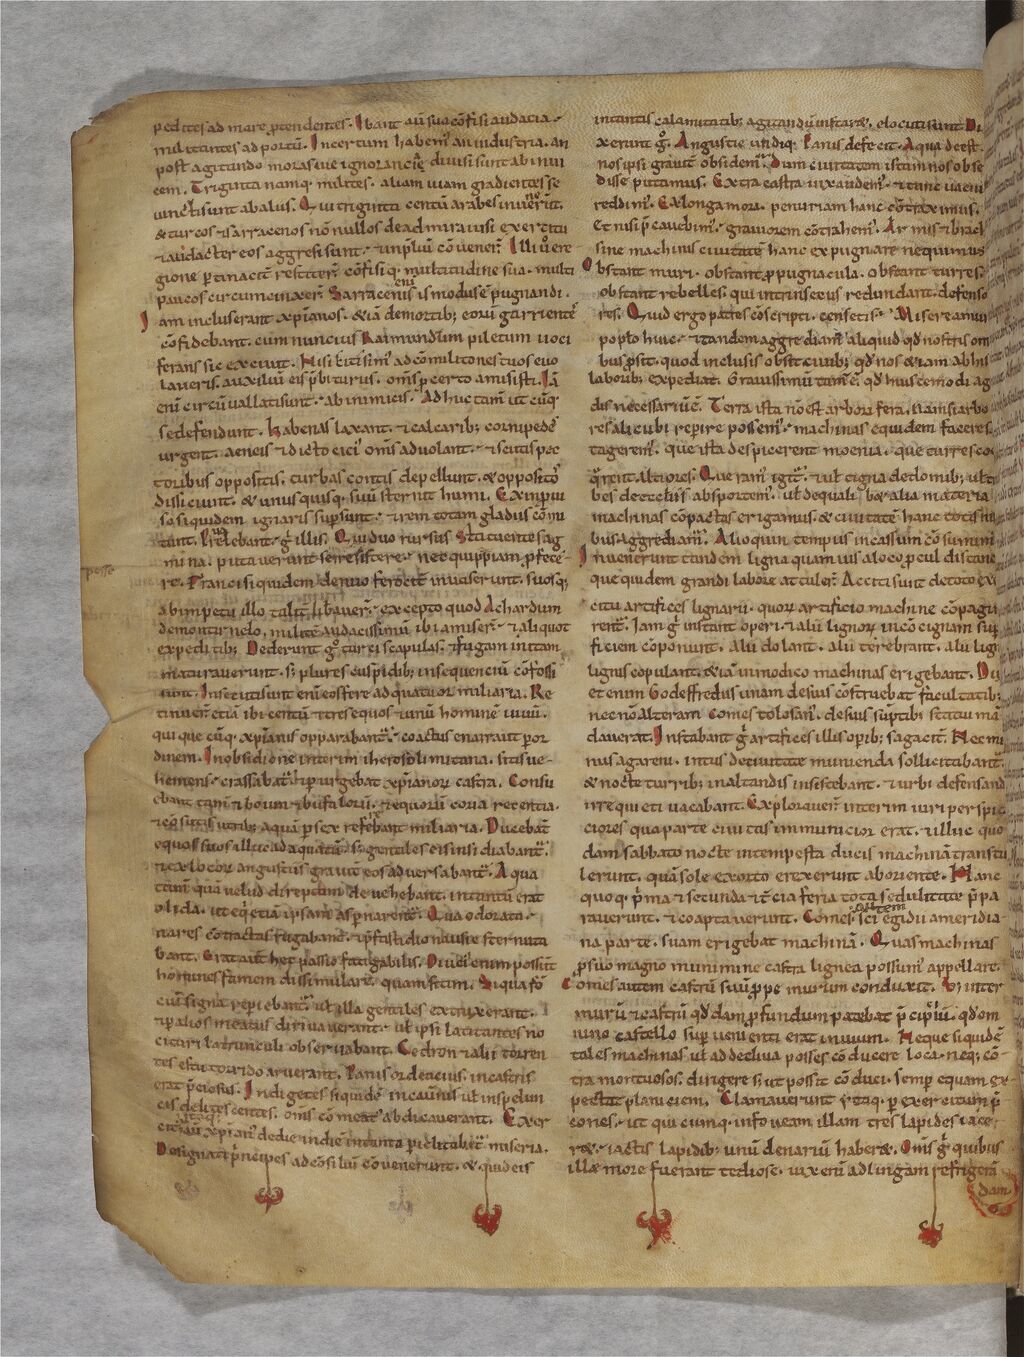 pedites ad mare ptendentes. Ibant aū sua cōfisi audacia.
militantes ad portū. Incertum habem᾽ an industria. an
post agitando moras uie ignorancię diuisi sunt ab inui
cem. Triginta namq; milites. aliam uiam gradientes se
iuncti sunt ab aliis. Qui triginta centū arabes inuenerūt.
& turcos & sarracenos nōnullos de admirauisi exercitu
& audacter eos aggressi sunt. & in plūm cōuener̄. Illi ū e re
gione ptinacit̄ restiter̄. cōfisiq; multitudine sua. multi
paucos circumcinxer̄. Sarracenis eni is modus ē pugnandi.
Iam incluserant xp̄ianos. & iā de mortib; eorū garrientes
cōfidebant. cum nuncius Raimundum piletum uoci
ferans sic exciuit. Nisi citissim᾽ ad cōmilitones tuos euo
laueris. auxiliū eis p̄biturus. om̄s p certo amisisti. Iā
enī circūuallati sunt. ab inimicis. Adhuc tam̄ utcūq;
se defendunt. Habenas laxant. & calcarib; cornipedē
urgent. & eneis & dicto cici᾽ om̄s aduolant. & scutis pec
toribus oppositis. turbas contis depellunt. & oppositos
dissiciunt. & unusquisq; suū sternit humi. Ex impui
so siquidem ignaris supsunt. & rem totam gladiis cōmi
tunt. Preualebant. g᾽ illis. Qui duo rursus statuentes ag
mina. putauerunt se resistere. nec quippiam pfece
posse
re. Franci siquidem denuo ferocit̄ inuaserunt. suosq;
ab impetu illo talit̄ libauer̄. excepto quod Achardum
de monte merlo. militē audacissimū ibi amiser̄. & aliquot
expeditib;. Dederunt g᾽ turci scapulas. & fugam initam
maturauerunt. s; plures cuspidib; insequenciū cōfossi
sunt. Insecuti sunt enī eos fere ad quatuor miliaria. Re
tinuer̄ etiā ibi centū & tres equos & unū hominē uiuū.
qui quecūq; xp̄ianis opparabant᾽. coactus enarrauit p or
dinem. In obsidione interim iherosolimitana. sitis ue
hemens. grassabat᾽. & purgebat xp̄ianoꝝ castra. Consu
ebant tam̄ & boum & bufaloꝝ. & equoꝝ coria recentia.
& cōsutis utrib; aquā p sex referebant miliaria. Ducebāt
equos suos illuc ad aquatū. s; gentiles eis insidiabant᾽.
& ex locoꝝ angustiis grauit̄ eos aduersabant᾽. Aqua
tam̄ quā uelud direptam deuehebant. in tantū erat
olida. ut eq̄ etiā ipsam aspnarent᾽. Qua odorata.
nares cōtractas fugabant. & p̄ fastidio nausie sternuta
bant. Erat aut̄ hec passio fatigabilis. Diuici enim possunt
homines famem dissimulare. quam sitim. Si qua fo
cuū signa repiebant᾽. ut illa gentiles extruxerant.
& palios meatus diriuauerant. ut ipsi latitantes no
cituri latrunculi obseruabant. Cedron & alii torren
tes estu torrido aruerant. Panis ordeicius. in castris
erat p̄ciosus. Indigetes siquidē in cauīs ut in spelun
cis delitescentes. om̄s cōmeat᾽ abdicauerant. Exer
citꝰ aūt xp̄ian᾽ de die in diē intanta piclitabat᾽ miseria.
Designati p̄ncipes ad cōsiliū cōuenerunt. & quid eis
intantis calamitatib; agitandū instaret. elocuti sunt. Di
xerunt g᾽. Angustie undiq;. Panis deficit. Aqua deest.
nos ipsi grauit̄ obsidem᾽. Dum ciuitatem istam nos obse
disse putamus. Extra castra uix audem᾽. & tunc uacui
reddim᾽. Ex longa mora. penuriam hanc cōtraximus.
Et nisi p̄cauebim᾽. grauiorem cōtrahem᾽. Armis & brach
sine machinis ciuitatē hanc expugnare nequimus
Obstant muri. obstant ppugnacula. obstant turres.
obstant rebelles. qui intrinsecus redundant. defenso
res. Quid ergo patres cōscripti. censetis; Misereamini
poplo huic. & tandem aggrediam᾽ aliquid qd̄ nostris om
bus p̄sit. quod inclusis obstet ciuib; qd̄ nos & iam ab his
laborib; expediat. Grauissimū tam̄ ē. qd̄ huiuscemodi ag
dis necessariū ē. Terra ista nō est arborifera. Nam si arbo
res alicubi repire possem᾽. machinas equidem faceres
tagerem᾽. que ista despicerent moenia. que turres eos
q̄rent altiores. Queram᾽ igit᾽. & ut tigna de domib; uł t
bes de ecclīis absportem᾽. uł de qualib& alia materia
machinas cōpactas erigamus. & ciuitatē hanc totis ni
bus aggrediam᾽. Alioquin tempus incassum cōsumim᾽
Inuenerunt tandem ligna quamuis a loco pcul distante
que quidem grandi labore attuler̄. Acciti sunt de toto ex
citu artifices lignarii. quoꝝ artificio machine cōpagi
rent᾽. Iam g᾽ instant operi. & alii lignoꝝ incōcignam sup
ficiem cōponunt. alii dolant. alii terebrant. alii lign
lignis copulant. & iā inmodico machinas erigebant. Du
et enim Godeffredus unam de suis cōstruebat facultatib;
nec nō alteram Comes tolosan᾽. de suis sūptib; scitu mā
dauerat. Instabant g᾽ artifices illis opib; sagacit̄. Nec mi
nus agareni. intus de ciuitate munienda sollicitabant᾽.
& nocte turrib; in altandis insistebant. & urbi defensand
ne requieti uacabant. Explorauer̄ interim uiri perspic
ciores qua parte ciuitas inmunicior erat. & illuc quo
dam sabbato nocte intempesta ducis machinā transtu
lerunt. quā sole exorto erexerunt ab oriente. Hanc
quoq; p̄ma & secunda & t̄cia feria tota sedulitate p̄pa
rauerunt. & coaptauerunt. Comes autem sci egidii a meridia
na parte. suam erigebat machinā. Quas machinas
p suo magno munimine castra lignea possum᾽ appellare.
Comes autem castrū suū ppe murum conduxit. S; inter
murū & castrū qd̄dam pfundum patebat p̄cipiū. qd̄ om
nino castello supuenienti erat inuium. Neque siquidē
tales machinas uł ad decliua posses cōducere loca. neq; cō
tra montuosos. dirigere. s; ut possit cōduci. semp equam ex
pectat planiciem. Clamauerunt itaq; p exercitum p̄
cones. ut quicumq; in foueam illam tres lapides iace
ret. & iactis lapidib; unū denariū haberet. Om̄s g᾽ quibus
illæ more fuerant tediose. uix enī ad lingam refrigerii
dam